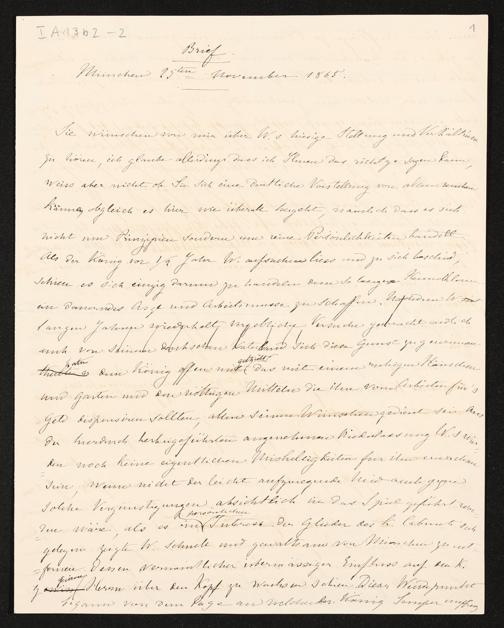 I A 13 b 2 - 2
1
Brief.
München 25ten November 1865.
Sie wünschen von mir über W.s hiesige Stellung und Verhältnisse
zu hören, ich glaube allerdings dass ich Ihnen das richtige sagen kann,
weiss aber nicht ob Sie sich eine deutliche Vorstellung von allem machen
können, obgleich es hier wie überall hergeht, nämlich dass es sich
nicht um Prinzipien sondern um reine Persönlichkeiten handelt.
Als der König vor 1½ Jahr W. aufsuchen liess und zu sich beschied,
schien es sich einzig darum zu handeln dem
zu schaffen, W.
langen Jahren wiederholt vergebliche Versuche gemacht
auch von seinem Vaterland sich diese Gunst zu gewinnen
dem König offen mit das mit einem ruhigen Häuschen
und Garten und den nöthigen Mitteln die ihn vom Arbeiten für's
Geld dispensiren sollten, allen seinen Wünschen gedient sei. Aus
der hierdurch herbeigeführten angenehmen Niederlassung W.s
den noch keine eigentlichen Misheligkeiten für ihn
sein, wenn nicht der leicht aufzuregende Neid auch gegen
solche Vergünstigungen absichtlich in das Spiel geführt
wäre, als es im persönlichen Interesse der Glieder des k. Cabinets
gelegen zeigte W. schnell und gewaltsam von München zu
fernen, dessen vermeintlicher übermässiger Einfluss auf den K.
ihnen über den Kopf zu wachsen schien. Dieser Wendepunkt
begann von dem Tage an welchem der König Semper